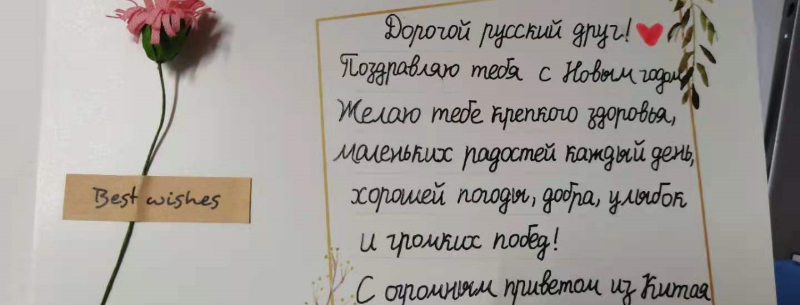 Дорогой русский друг!
Поздравляю тебя с Новым годом
Желаю тебе крепкого здоровья,
маленьких радостей каждый день,
хорошей погоды, добра, улыбок
и громких побед!
С огромным приветом из Китая
Best wishes